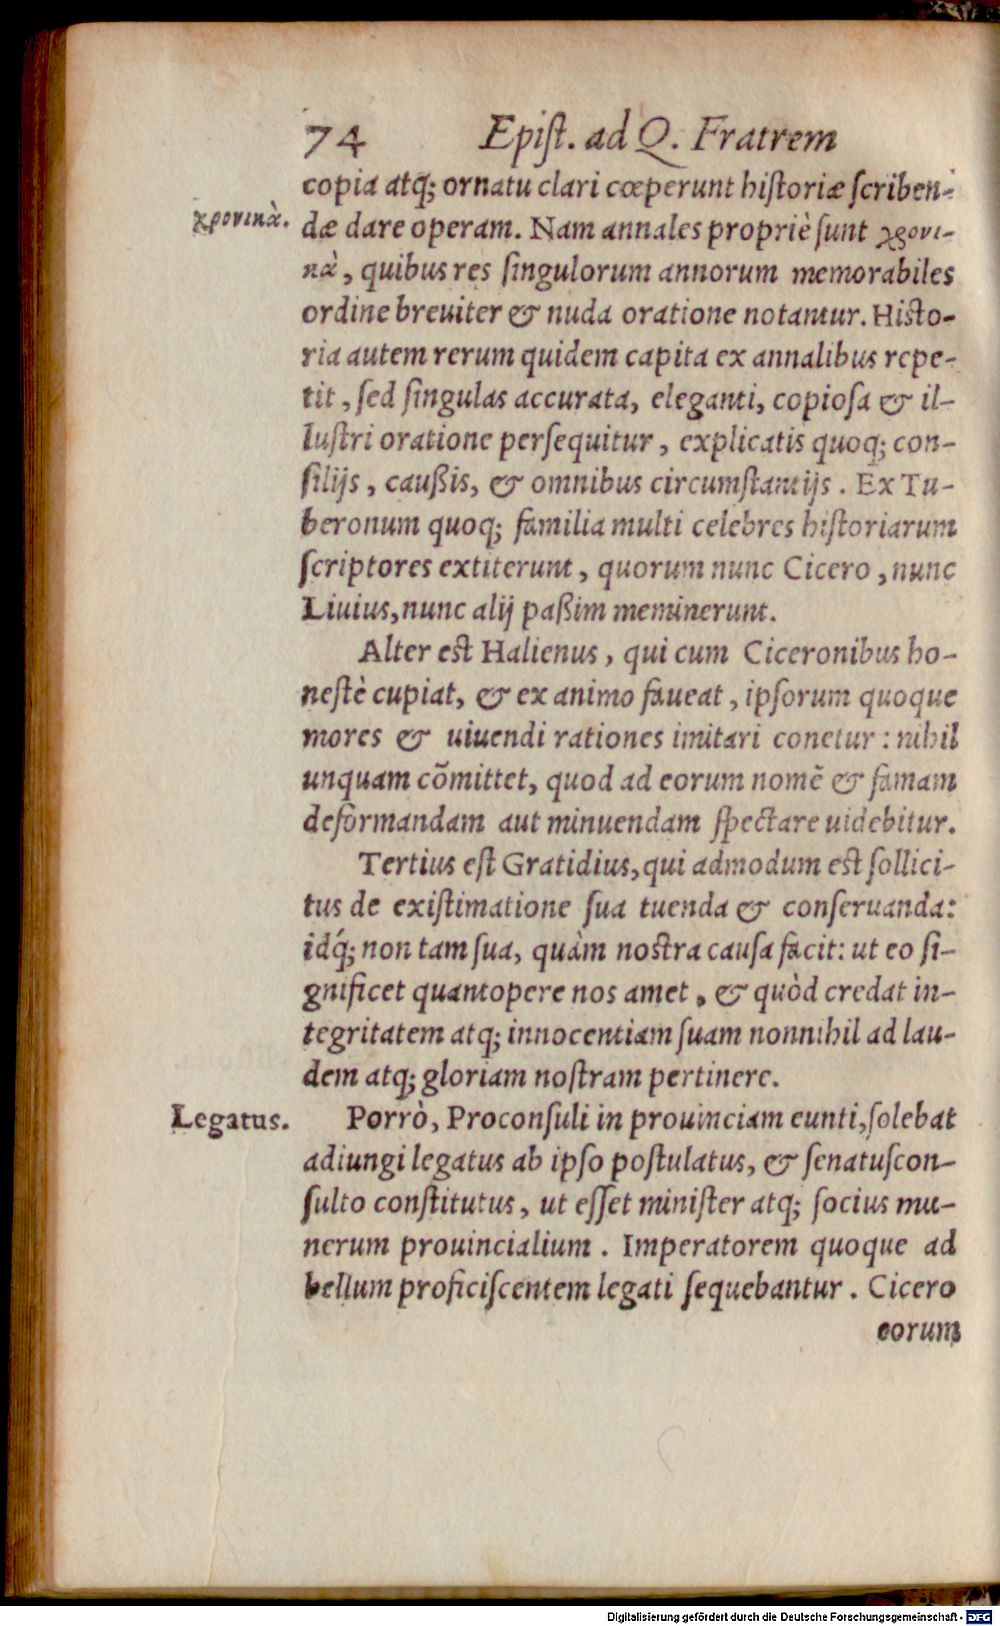 74 Epiſt. ad Q. Fratrem
copia atq; ornatu clari cœperunt hiſtoriæ ſcriben-
χρονικὰ. dæ dare operam. Nam annales propriè ſunt χρονι-
κὰ, quibus res ſingulorum annorum memorabiles
ordine breuiter & nuda oratione notantur. Histo-
ria autem rerum quidem capita ex annalibus repe-
tit, ſed ſingulas accurata, eleganti, copioſa & il-
luſtri oratione perſequitur, explicatis quoq; con-
ſilijs, caußis, & omnibus circumſtantijs. Ex Tu-
beronum quoq; familia multi celebres hiſtoriarum
ſcriptores extiterunt, quorum nunc Cicero, nunc
Liuius, nunc alij paßim meminerunt.
Alter est Halienus, qui cum Ciceronibus ho-
neſtè cupiat, & ex animo faueat, ipſorum quoque
mores & uiuendi rationes imitari conetur: nihil
unquam cõmittet, quod ad eorum nomẽ & famam
deformandam aut minuendam ſpectare uidebitur.
Tertius eſt Gratidius, qui admodum est ſollici-
tus de exiſtimatione ſua tuenda & conſeruanda:
idq́; non tam ſua, quàm nostra cauſa facit: ut eo ſi-
gnificet quantopere nos amet, & quòd credat in-
tegritatem atq; innocentiam ſuam nonnihil ad lau-
dem atq; gloriam noſtram pertinere.
Legatus. Porrò, Proconſuli in prouinciam eunti, ſolebat
adiungi legatus ab ipſo poſtulatus, & ſenatuſcon-
ſulto conſtitutus, ut eſſet miniſter atq; ſocius mu-
nerum prouincialium. Imperatorem quoque ad
bellum proficiſcentem legati ſequebantur. Cicero
eorum
Digitalisierung gefördert durch die Deutsche Forschungsgemeinschaft - DFG